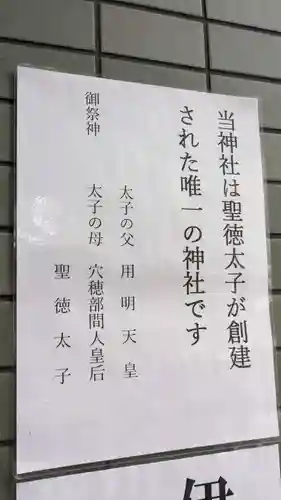 当神社は聖徳太子が創建
された唯一の神社です
御祭神
太子の父 用明天皇
太子の母 穴穂部間人皇后
聖徳太子
伊